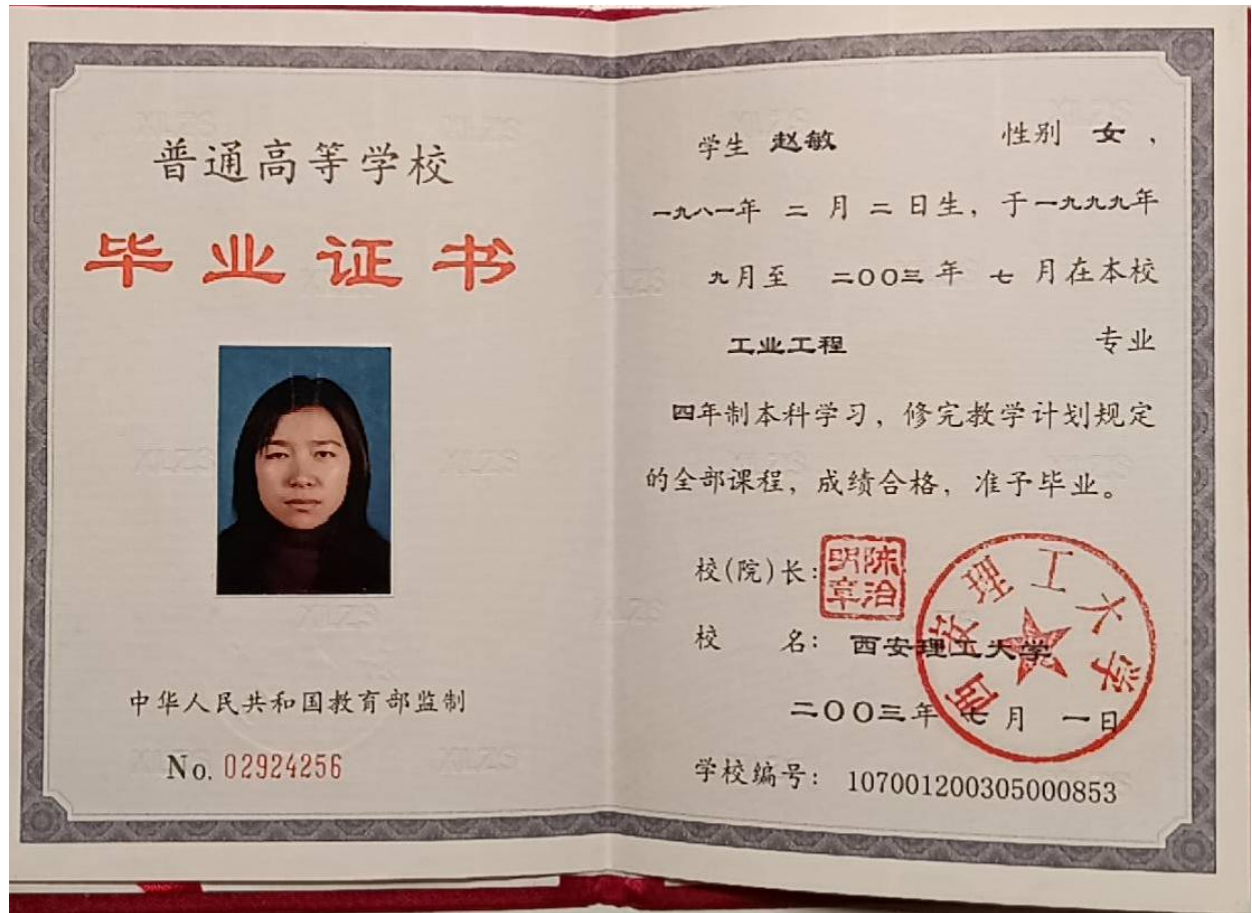 普通高等学校
毕业证书
中华人民共和国教育部监制
No. 02924256
学生 赵敏 性别 女，
一九八一年 二 月 二 日生，于一九九九年
九月至 二〇〇三 年 七 月在本校
工业工程 专业
四年制本科学习，修完教学计划规定
的全部课程，成绩合格，准予毕业。
校(院)长：
陈治明章
校 名：西安理工大学
西安理工大学
二〇〇三年 七 月 一日
学校编号：107001200305000853